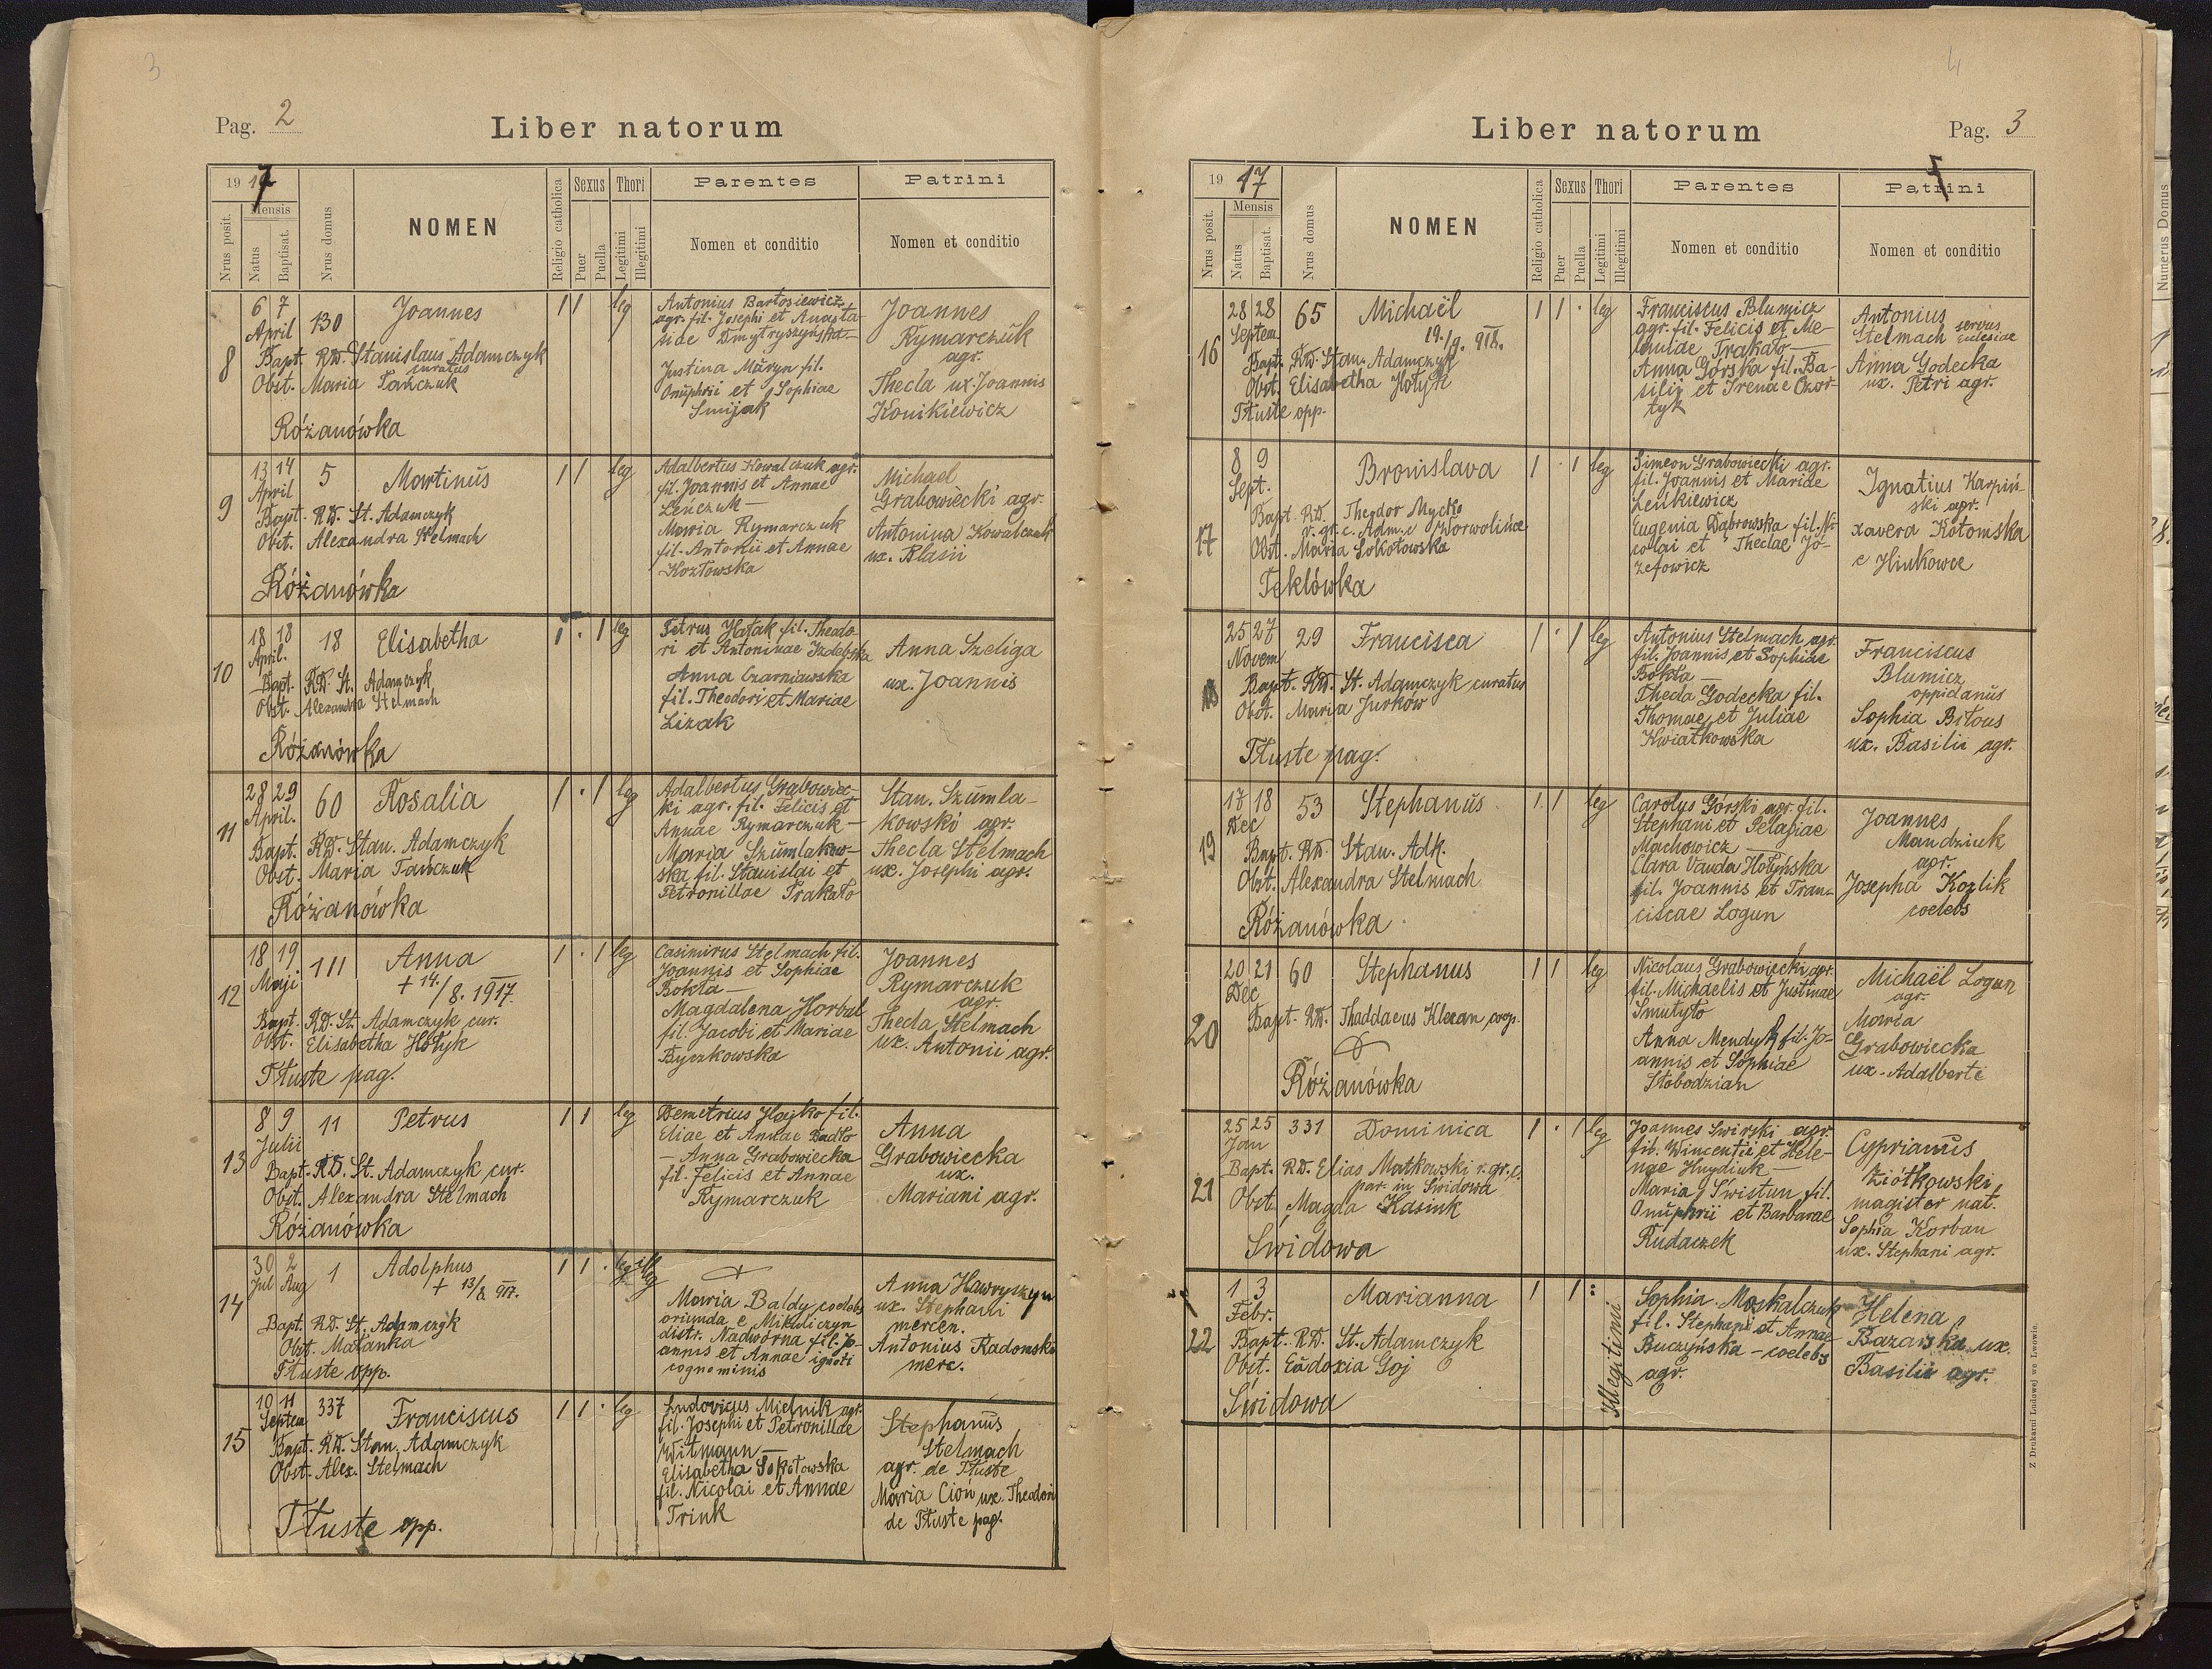 3
Pag. 2
Liber natorum
1917
Nrus posit.
Mensis
Natus
Baptisat.
Nrus domus
NOMEN
Religio catholica
Sexus
Puer
Puella
Thori
Legitimi
Illegitimi
Parentes
Nomen et conditio
Patrini
Nomen et conditio
8
6 7
April
130
Joannes
1 1 leg
Bapt. RD. Stanislaus Adamczyk
curatus
Obst. Maria Tańczuk
Różanówka
Antonius Bartosiewicz
agr. fil. Josephi et Anasta-
siae Dmytryszyńska
Justina Muryn fil.
Onuphrii et Sophiae
Smijak
Joannes
Rymarczuk
agr.
Thecla ux. Joannis
Konikiewicz
9
13 14
April
5
Martinus
1 1 leg
Bapt. RD. St. Adamczyk
Obst. Alexandra Stelmach
Różanówka
Adalbertus Kowalczuk agr.
fil. Joannis et Annae
Leńczuk —
Maria Rymarczuk
fil. Antonii et Annae
Kozłowska
Michael
Grabowiecki agr.
Antonina Kowalczuk
ux. Blasii
10
18 18
April.
18
Elisabetha
1 · 1 leg
Bapt. RD. St. Adamczyk
Obst. Alexandra Stelmach
Różanówka
Petrus Hałak fil. Theodo-
ri et Antoninae Izdebska
Anna Czarniawska
fil. Theodori et Mariae
Lizak
Anna Szeliga
ux. Joannis
11
28 29
April.
60
Rosalia
1 · 1 leg
Bapt. RD. Stan. Adamczyk
Obst. Maria Tańczuk
Różanówka
Adalbertus Grabowiec-
ki agr. fil. Felicis et
Annae Rymarczuk —
Maria Szumlakow-
ska fil. Stanislai et
Petronillae Trakało
Stan. Szumla-
kowski agr.
Thecla Stelmach
ux. Josephi agr.
12
18 19
Maji
111
Anna
+ 14./8. 1917.
1 · 1 leg
Bapt. RD. St. Adamczyk cur.
Obst. Elisabetha Hołyk
Tłuste pag.
Casimirus Stelmach fil.
Joannis et Sophiae
Bokla —
Magdalena Horbal
fil. Jacobi et Mariae
Byczkowska
Joannes
Rymarczuk
agr.
Thecla Stelmach
ux. Antonii agr.
13
8 9
Julii
11
Petrus
1 1 leg
Bapt. RD. St. Adamczyk cur.
Obst. Alexandra Stelmach
Różanówka
Demetrius Hajko fil.
Eliae et Annae Badło
— Anna Grabowiecka
fil. Felicis et Annae
Rymarczuk
Anna
Grabowiecka
ux.
Mariani agr.
14
30 2
Jul Aug
1
Adolphus
+ 13/8 917.
1 1 · leg illeg
Bapt. RD. St. Adamczyk
Obst. Małanka
Tłuste opp.
Maria Baldy coelebs
oriunda e Mikuliczyn
distr. Nadwórna fil. Jo-
annis et Annae ignoti
cognominis
Anna Hawryszyn
ux. Stephani
mercen.
Antonius Radomski
merc.
15
10 11
Septem
337
Franciscus
1 1 · leg
Bapt. RD. Stan. Adamczyk
Obst. Alex. Stelmach
Tłuste opp.
Ludovicus Mielnik agr.
fil. Josephi et Petronillae
Witmann —
Elisabetha Sokołowska
fil. Nicolai et Annae
Trink
Stephanus
Stelmach
agr. de Tłuste
Maria Cioń ux. Theodori
de Tłuste pag.
4
Liber natorum
Pag. 3
1917
Nrus posit.
Mensis
Natus
Baptisat.
Nrus domus
NOMEN
Religio catholica
Sexus
Puer
Puella
Thori
Legitimi
Illegitimi
Parentes
Nomen et conditio
Patrini
Nomen et conditio
16
28 28
Septem.
65
Michaël
19./9. 918.
1 1 · leg
Bapt. RD. Stan. Adamczyk
Obst. Elisabetha Hołyk
Tłuste opp.
Franciscus Blumicz
agr. fil. Felicis et Me-
laniae Trakało —
Anna Górska fil. Ba-
silii et Irenae Czor-
tyk
Antonius
Stelmach servus
Ecclesiae
Anna Godecka
ux. Petri agr.
17
8 9
Sept.
Bronislava
1 · 1 leg
Bapt. RD. Theodor Mycko
r. gr. c. Adm. e Worwolińce
Obst. Maria Sokołowska
Teklówka
Simeon Grabowiecki agr.
fil. Joannis et Mariae
Leńkiewicz
Eugenia Dąbrowska fil. Ni-
colai et Theclae Jó-
zefowicz
Ignatius Karpiń-
ski agr.
Xavera Kotomska
e Hinkowce
18
25 27
Novem
29
Francisca
1 · 1 leg
Bapt. RD. St. Adamczyk curatus
Obst. Maria Jurków
Tłuste pag.
Antonius Stelmach agr.
fil. Joannis et Sophiae
Bokla —
Thecla Godecka fil.
Thomae et Juliae
Kwiatkowska
Franciscus
Blumicz
oppidanus
Sophia Biłous
ux. Basilii agr.
19
17 18
Dec
53
Stephanus
1 1 leg
Bapt. RD. Stan. Adk.
Obst. Alexandra Stelmach
Różanówka
Carolus Górski agr. fil.
Stephani et Pelagiae
Machowicz —
Clara Vanda Hołyńska
fil. Joannis et Fran-
ciscae Logun
Joannes
Mandziuk
agr.
Josepha Kozlik
coelebs
20
20 21
Dec
60
Stephanus
1 1 leg
Bapt. RD. Thaddaeus Klezan coop.
Różanówka
Nicolaus Grabowiecki agr.
fil. Michaelis et Justinae
Smutyło
Anna Mendyk fil. Jo-
annis et Sophiae
Słobodzian
Michaël Logun
agr.
Maria
Grabowiecka
ux. Adalberti
21
25 25
Jan
331
Dominica
1 · 1 leg
Bapt. RD. Elias Matkowski r. gr. c.
par. in Świdowa
Obst. Magda Kasiuk
Świdowa
Joannes Świrski agr.
fil. Wincentii et Hele-
nae Hnydiuk —
Maria Świstun fil.
Onuphrii et Barbarae
Rudaczek
Cyprianus
Ziółkowski
magister nat.
Sophia Korban
ux. Stephani agr.
22
1 3
Febr.
Marianna
1 1
Illegitimi
Bapt. RD. St. Adamczyk
Obst. Eudoxia Goj
Świdowa
Sophia Moskalczuk
fil. Stephani et Annae
Buczyńska — coelebs
agr.
Helena
Bazarska ux.
Basilii agr.
Z Drukarni Ludowej we Lwowie.
Numerus Domus